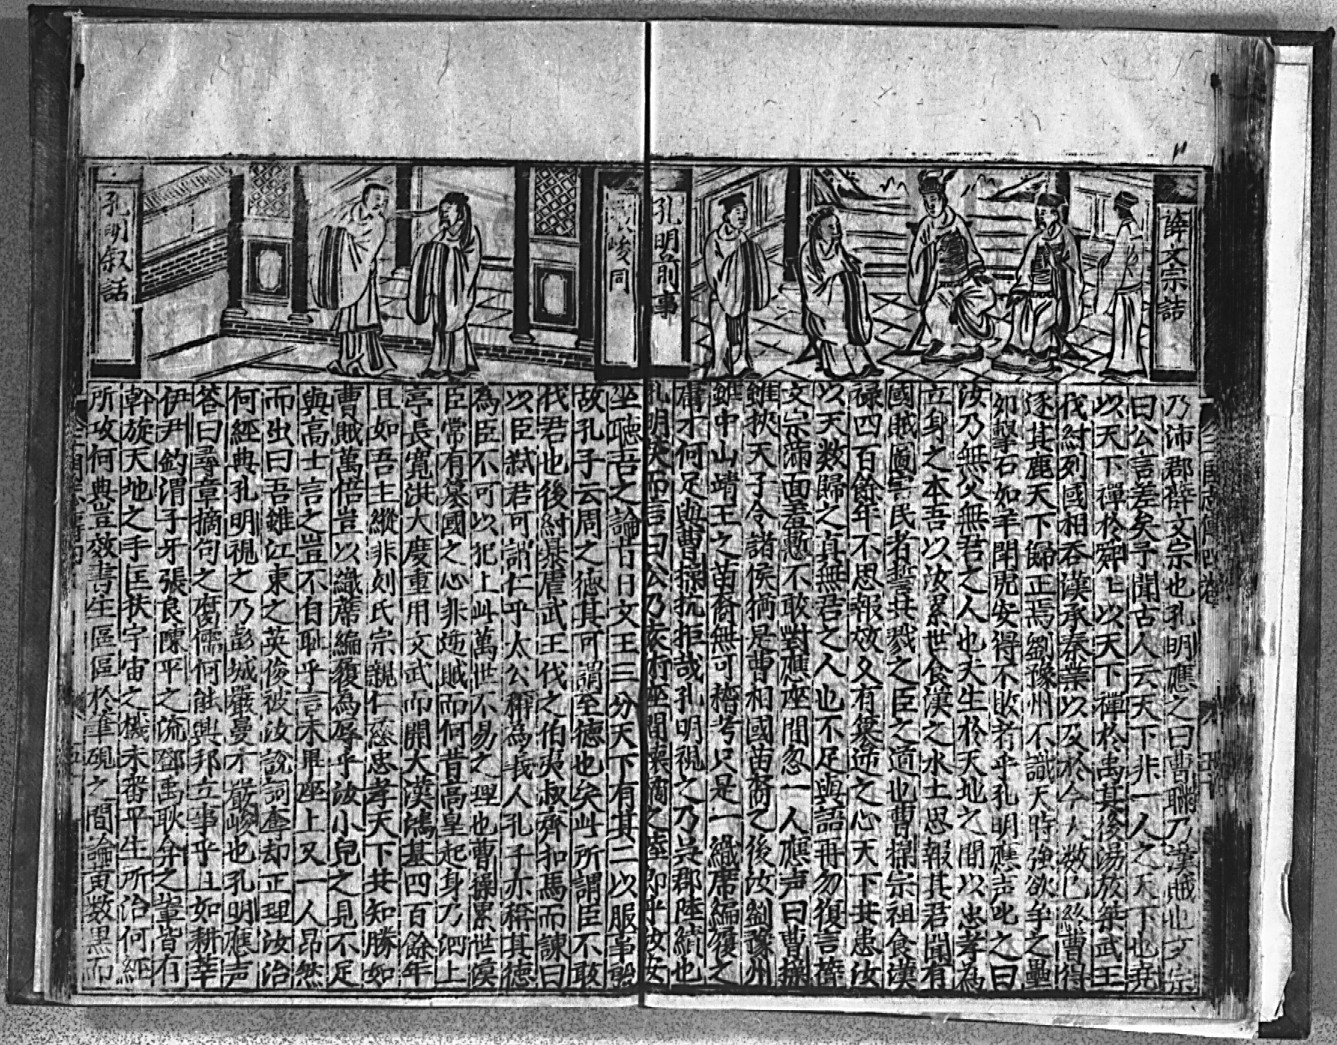 薛文宗詰
孔明曹則事
乃沛郡薛文宗也孔明應之曰曹賊乃漢賊也文宗
曰公言差矣予聞古人云天下非一人之天下也堯
以天下禪於舜上以天下禪於禹其後湯放桀武王
伐紂列國相吞漢承秦業以及於今天數已終曹得
逐其鹿天下歸正焉劉豫州不識天時強欲爭之壘
卵擊石如羊鬥虎安得不敗者乎孔明應声叱之曰
汝乃無父無君之人也夫生於天地之間以忠孝為
立身之本吾以汝累世食漢之水土思報其君聞有
國賊圖害民者誓共戮之臣之道也曹操宗祖食漢
祿四百餘年不思報效久有篡逆之心天下共患汝
以天数歸之真無君之人也不足與語再勿復言薛
文宗滿面羞慙不敢對應座間忽一人應声曰曹操
雖挾天子令諸侯猶是曹相國苗裔之後汝劉豫州
雖中山靖王之苗裔無可稽考只是一織席編履之
庸才何足與曹操抗拒哉孔明視之乃吳郡陸績也
孔明笑而言曰公乃袁術座間懷橘之陸郎乎汝安
峻同
孔明叙話
坐聽吾之論昔日文王三分天下有其二以服事殷
故孔子云周之德其可謂至德也矣此所謂臣不敢
伐君也後紂暴虐武王伐之伯夷叔齊扣馬而諫曰
以臣弒君可謂仁乎太公稱為義人孔子亦稱其德
為臣不可以犯上此萬世不易之理也曹操累世漢
臣常有篡國之心非逆賊而何昔高皇起身乃泗上
亭長寬洪大度重用文武而開大漢鴻基四百餘年
且如吾主縱非刘氏宗親仁慈忠孝天下共知勝如
曹賊萬倍豈以織席編履為辱乎汝小兒之見不足
與高士言之豈不自耻乎言未畢座上又一人昂然
而出曰吾雖江東之英俊被汝說詞奪却正理汝治
何經典孔明視之乃彭城嚴曼才嚴峻也孔明應声
答曰尋章摘句之腐儒何能興邦立事乎且如耕莘
伊尹釣渭子牙張良陳平之流鄧禹耿弇之輩皆有
斡旋天地之手匡扶宇宙之機未審平生所治何經
所攻何典豈效書生區區於筆硯之間論黃数黑而